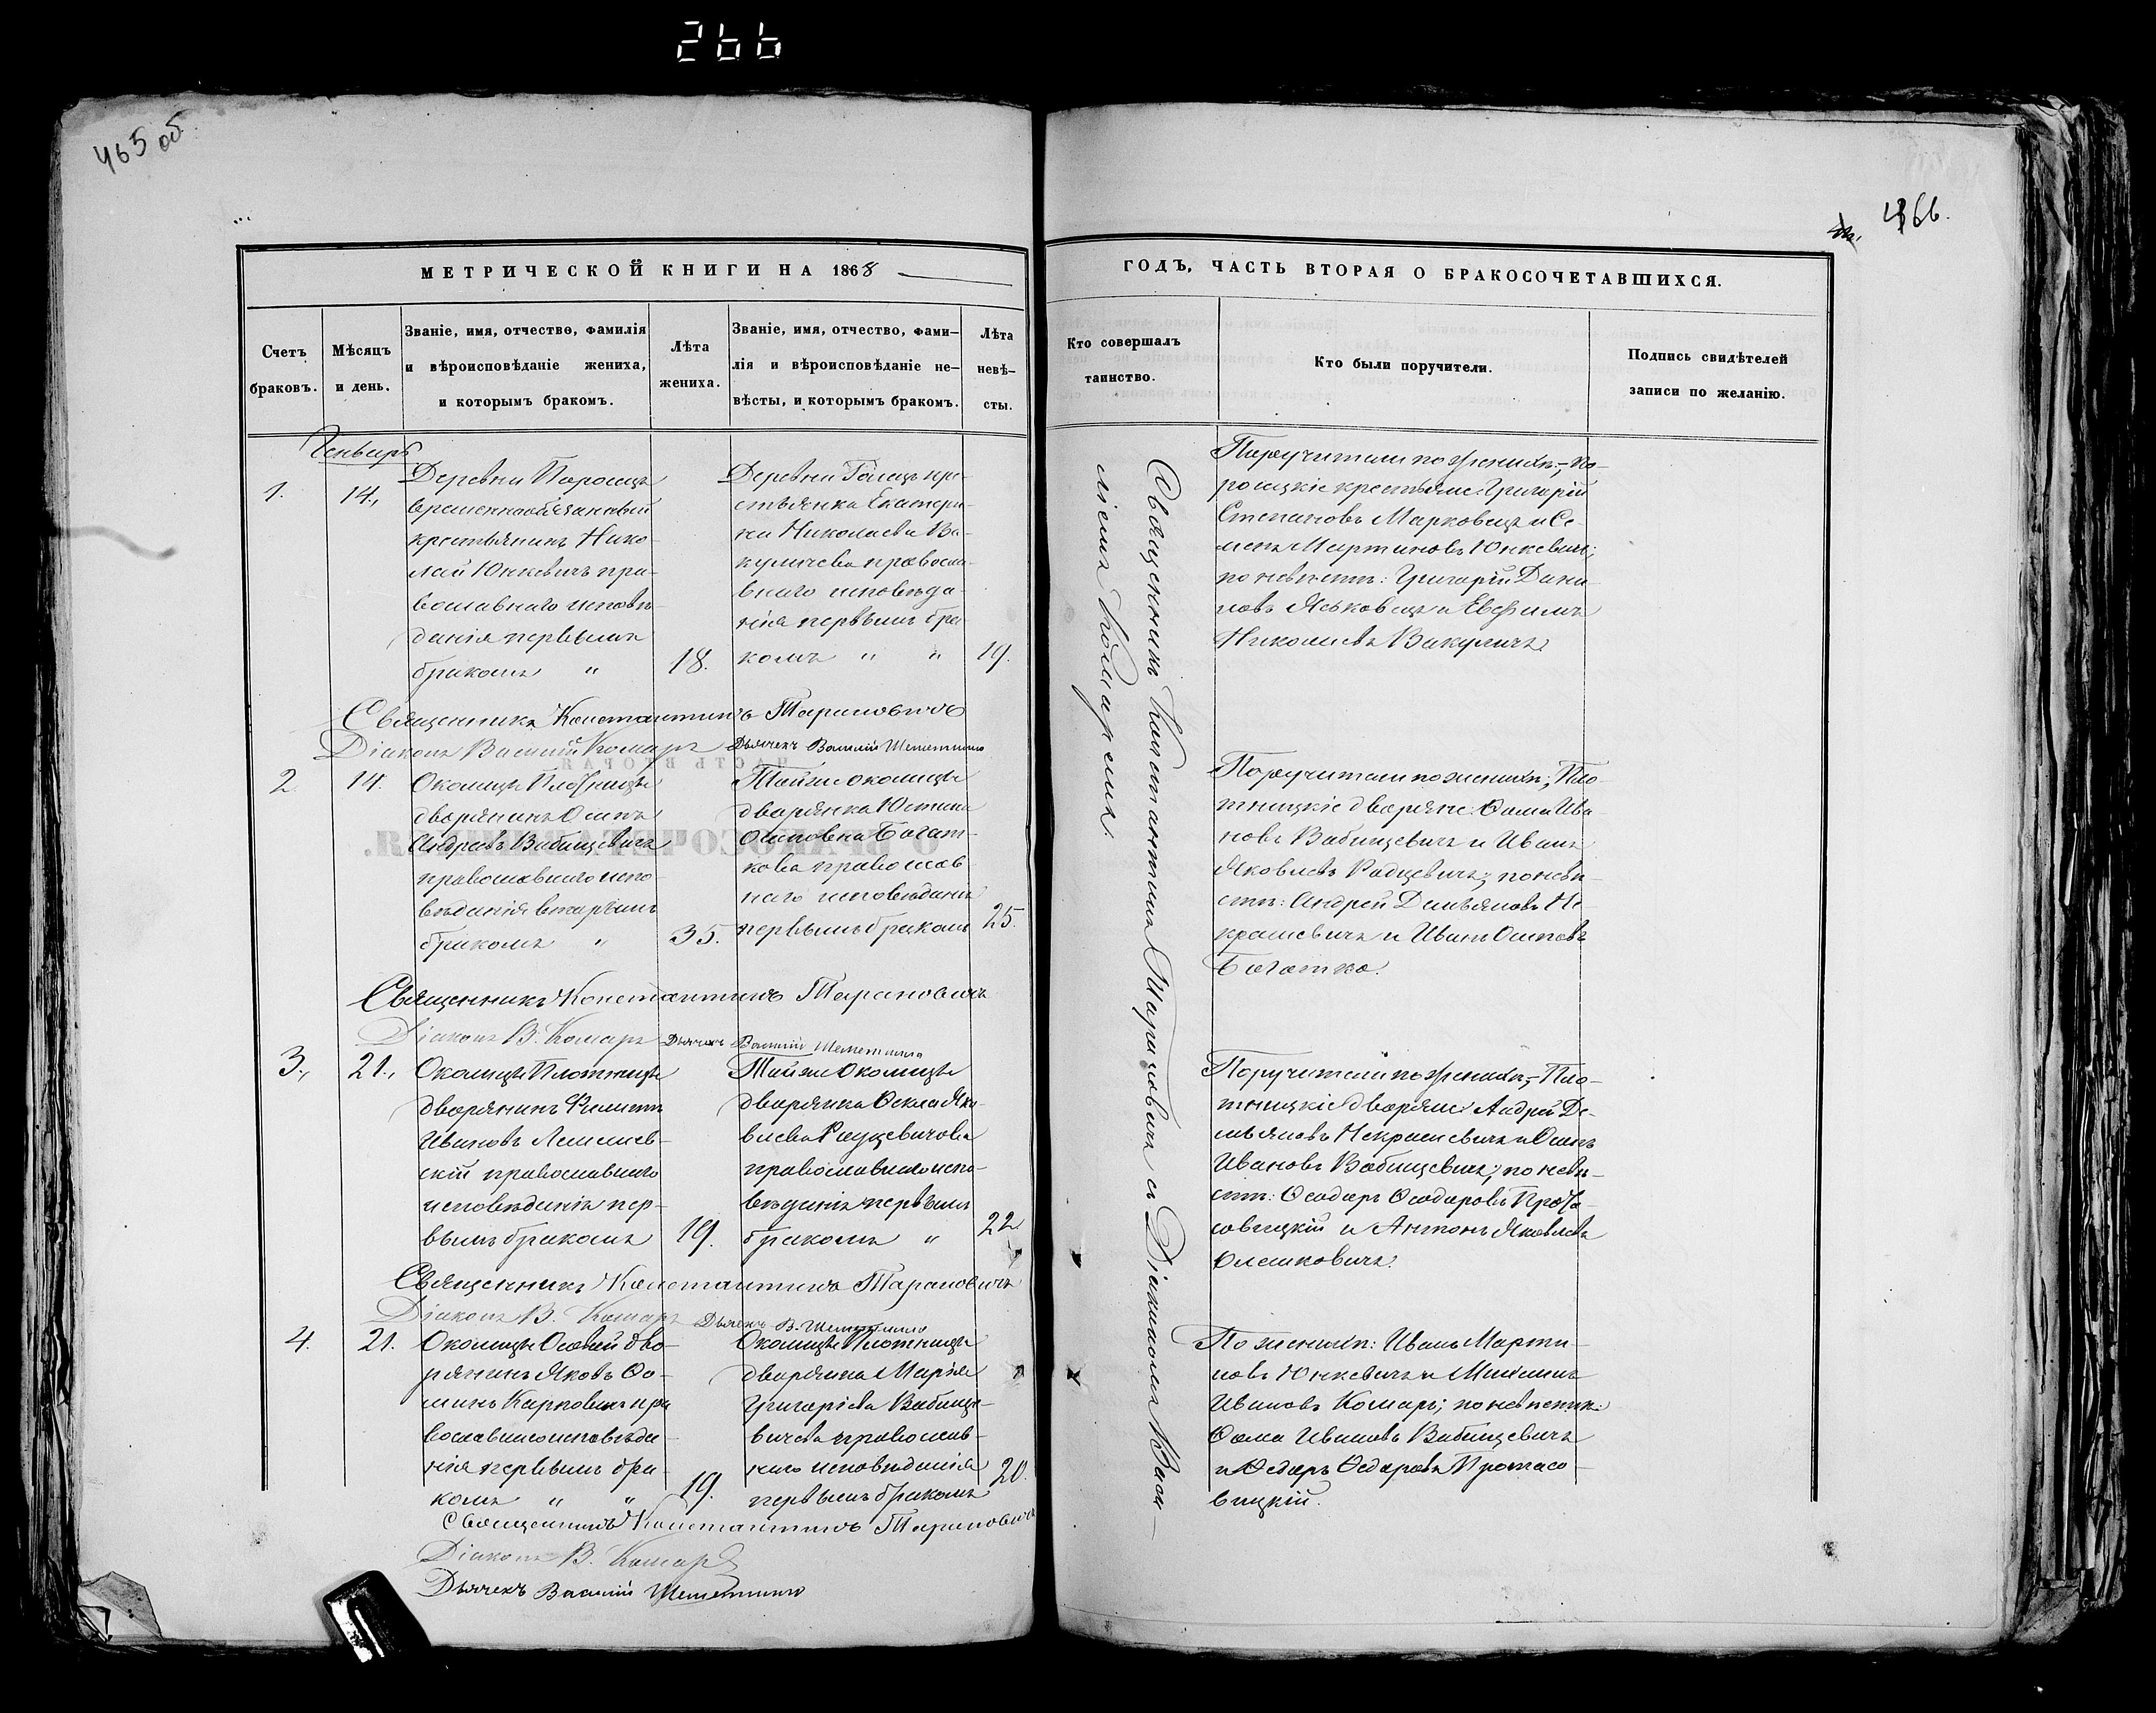 266
465 об.
466.
МЕТРИЧЕСКОЙ КНИГИ НА 1868
ГОДЪ, ЧАСТЬ ВТОРАЯ О БРАКОСОЧЕТАВШИХСЯ.
Счетъ
браковъ.
Мѣсяцъ
и день.
Званіе, имя, отчество, фамилія
и вѣроисповѣданіе жениха,
и которымъ бракомъ.
Лѣта
жениха.
Званіе, имя, отчество, фами–
лія и вѣроисповѣданіе не–
вѣсты, и которымъ бракомъ.
Лѣта
невѣ–
сты.
Кто совершалъ
таинство.
Кто были поручители.
Подпись свидѣтелей
записи по желанію.
Генварь
1.
14.,
Деревни Паросцъ
временнообязанный
крестьянинъ Нико-
лай Юнкевичъ пра-
вославнаго исповѣ-
данія первымъ
бракомъ "
18.
Деревни Галецъ кре-
стьянка Екатери-
на Николаева Ва-
куличева правосла-
внаго исповѣда-
нія первымъ бра-
комъ " "
19.
Поручители по женихѣ,– по-
росцкіе крестьяне: Григорій
Степановъ Марковецъ и Се-
менъ Мартиновъ Юнкевичъ;
по невѣстѣ: Григорій Дани-
ловъ Яськовецъ и Евфимъ
Николаевъ Вакуличъ.
Священникъ Константинъ Тарановичъ
Діаконъ Василій Комаръ Дьячекъ Василій Шеметилло
2.
14.
Околицы Плотницы
дворянинъ Осипъ
Андреевъ Вабищевичъ
православнаго испо-
вѣданія вторымъ
бракомъ "
35.
Той же околицы
дворянка Юстина
Осиповна Богат-
кова православ-
наго исповѣданія
первымъ бракомъ
25.
Поручители по женихѣ; Пло-
тницкіе дворяне: Ѳома Ива-
новъ Вабищевичъ и Иванъ
Яковлевъ Радцевичъ; по невѣ-
стѣ: Андрей Демьяновъ Не-
крашевичъ и Иванъ Осиповъ
Богатко.
Священникъ Константинъ Тарановичъ
Діаконъ В. Комаръ Дьячекъ Василій Шеметилло
3.,
21.,
Околицы Плотницы
дворянинъ Филиппъ
Ивановъ Лешнев-
скій православнаго
исповѣданія пер-
вымъ бракомъ
19.
Той же Околицы
дворянка Ѳекла Яко-
влева Радцевичова
православнаго испо-
вѣданія первымъ
бракомъ "
22.
Поручители по женихѣ,– Пло-
тницкіе дворяне: Андрей Де-
мьяновъ Некрашевичъ и Осипъ
Ивановъ Вабищевичъ; по невѣ-
стѣ: Ѳеодоръ Ѳеодоровъ Прота-
совицкій и Антонъ Яковлевъ
Олешковичъ.
Священникъ Константинъ Тарановичъ
Діаконъ В. Комаръ Дьячекъ В. Шеметилло
4.
21.
Околицы Осовей дво-
рянинъ Яковъ Ѳо-
минъ Карповичъ пра-
вославнаго исповѣда-
нія первымъ бра-
комъ " "
19.
Околицы Плотницы
дворянка Марія
Григоріева Вабище-
вичева православ-
наго исповѣданія
первымъ бракомъ
20.
По женихѣ: Иванъ Марти-
новъ Юнкевичъ и
Ивановъ Комаръ; по невѣстѣ:
Ѳома Ивановъ Вабищевичъ
и Ѳедоръ Ѳедоровъ Протасо-
вицкій.
Священникъ Константинъ Тарановичъ
Діаконъ В. Комаръ
Дьячекъ Василій Шеметилло
Священникъ Константинъ Тарановичъ съ Діакономъ Васи-
ліемъ Комаремъ.